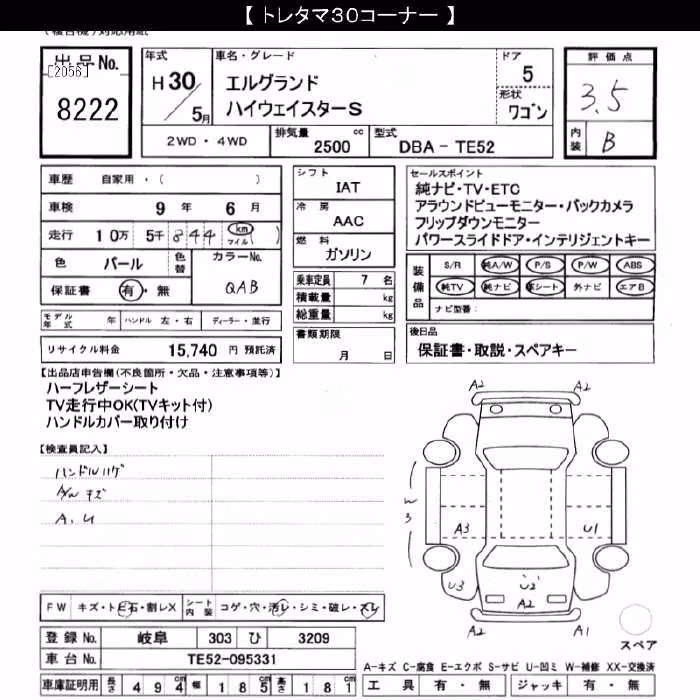 【 トレタマ30コーナー 】
出品No.
[2056]
8222
年式
H 30
5月
車名・グレード
エルグランド
ハイウェイスターS
ドア
5
形状
ワゴン
2WD ・ 4WD
排気量
2500 cc
型式
DBA - TE52
評価点
3.5
内装
B
車歴 自家用 ・ ( )
車検 9 年 6 月
走行 10万 5千 844 km マイル ( )
色 パール 色替
カラーNo. QAB
保証書 有 ・ 無
モデル年式 年 ハンドル 左・右 ディーラー・並行
リサイクル料金 15,740 円 預託済
シフト
IAT
冷房
AAC
燃料
ガソリン
乗車定員 7 名
積載量 kg
総重量 kg
書類期限
月 日
セールスポイント
純ナビ・TV・ETC
アラウンドビューモニター・バックカメラ
フリップダウンモニター
パワースライドドア・インテリジェントキー
装備品
S/R 純A/W P/S P/W ABS
純TV 純ナビ 革シート 外ナビ エアB
ナビ型番:
後日品
保証書・取説・スペアキー
【出品店申告欄(不良箇所・欠品・注意事項等)】
ハーフレザーシート
TV走行中OK(TVキット付)
ハンドルカバー取り付け
【検査員記入】
ハンドルハゲ
A/W キズ
A. U
A2 A2
W3
A3 U1
U3 U2
A2
A2 A1
スペア
FW キズ・トビ石・割レX シート内装 コゲ・穴・汚レ・シミ・破レ・スレ
登録No. 岐阜 303 ひ 3209
車台No. TE52-095331
車庫証明用 長さ 494 幅 185 高さ 181
A-キズ C-腐食 E-エクボ S-サビ U-凹ミ W-補修 XX-交換済
工具 有 ・ 無 ジャッキ 有 ・ 無